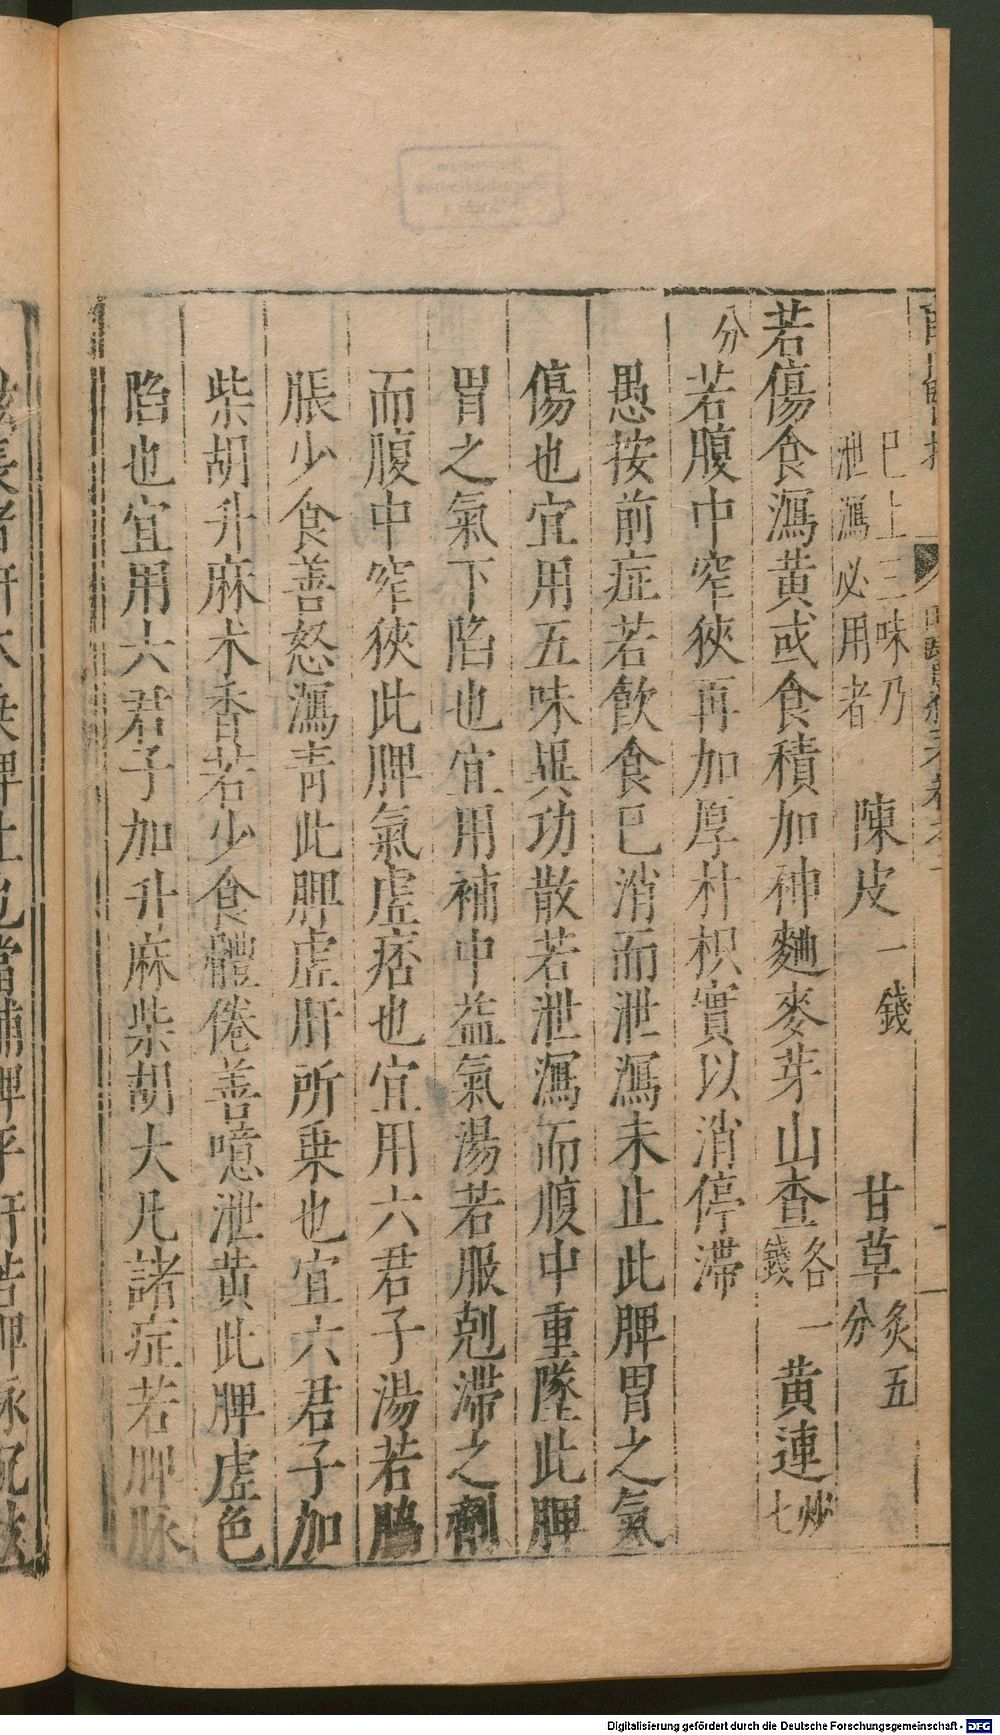 已上三味乃泄瀉必用者　陳皮一錢　甘草炙五分
若傷食瀉黃或食積加神麯麥芽山查各一錢黃連炒七
分若腹中窄狹再加厚朴枳實以消停滯
愚按前症若飲食已消而泄瀉未止此脾胃之氣
傷也宜用五味異功散若泄瀉而腹中重墜此脾
胃之氣下陷也宜用補中益氣湯若服剋滯之劑
而腹中窄狹此脾氣虛痞也宜用六君子湯若脇
脹少食善怒瀉青此脾虛肝所乗也宜六君子加
柴胡升麻木香若少食體倦善噫泄黃此脾虛色
陷也宜用六君子加升麻柴胡大凡諸症若脾脉
Digitalisierung gefördert durch die Deutsche Forschungsgemeinschaft - DFG